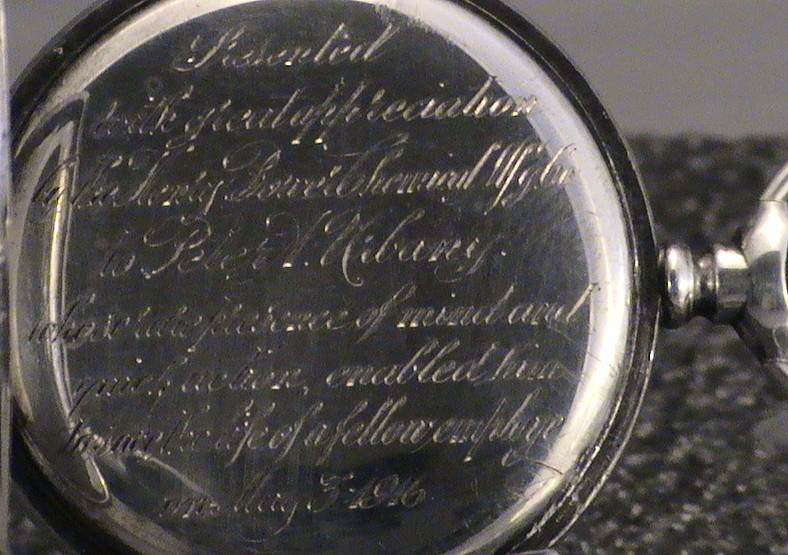 Presented
with great appreciation
by the Henry Bower Chemical Mfg. Co
to Peter
whose rare presence of mind and
quick action, enabled him
to save the life of a fellow employe
on May 5 1916